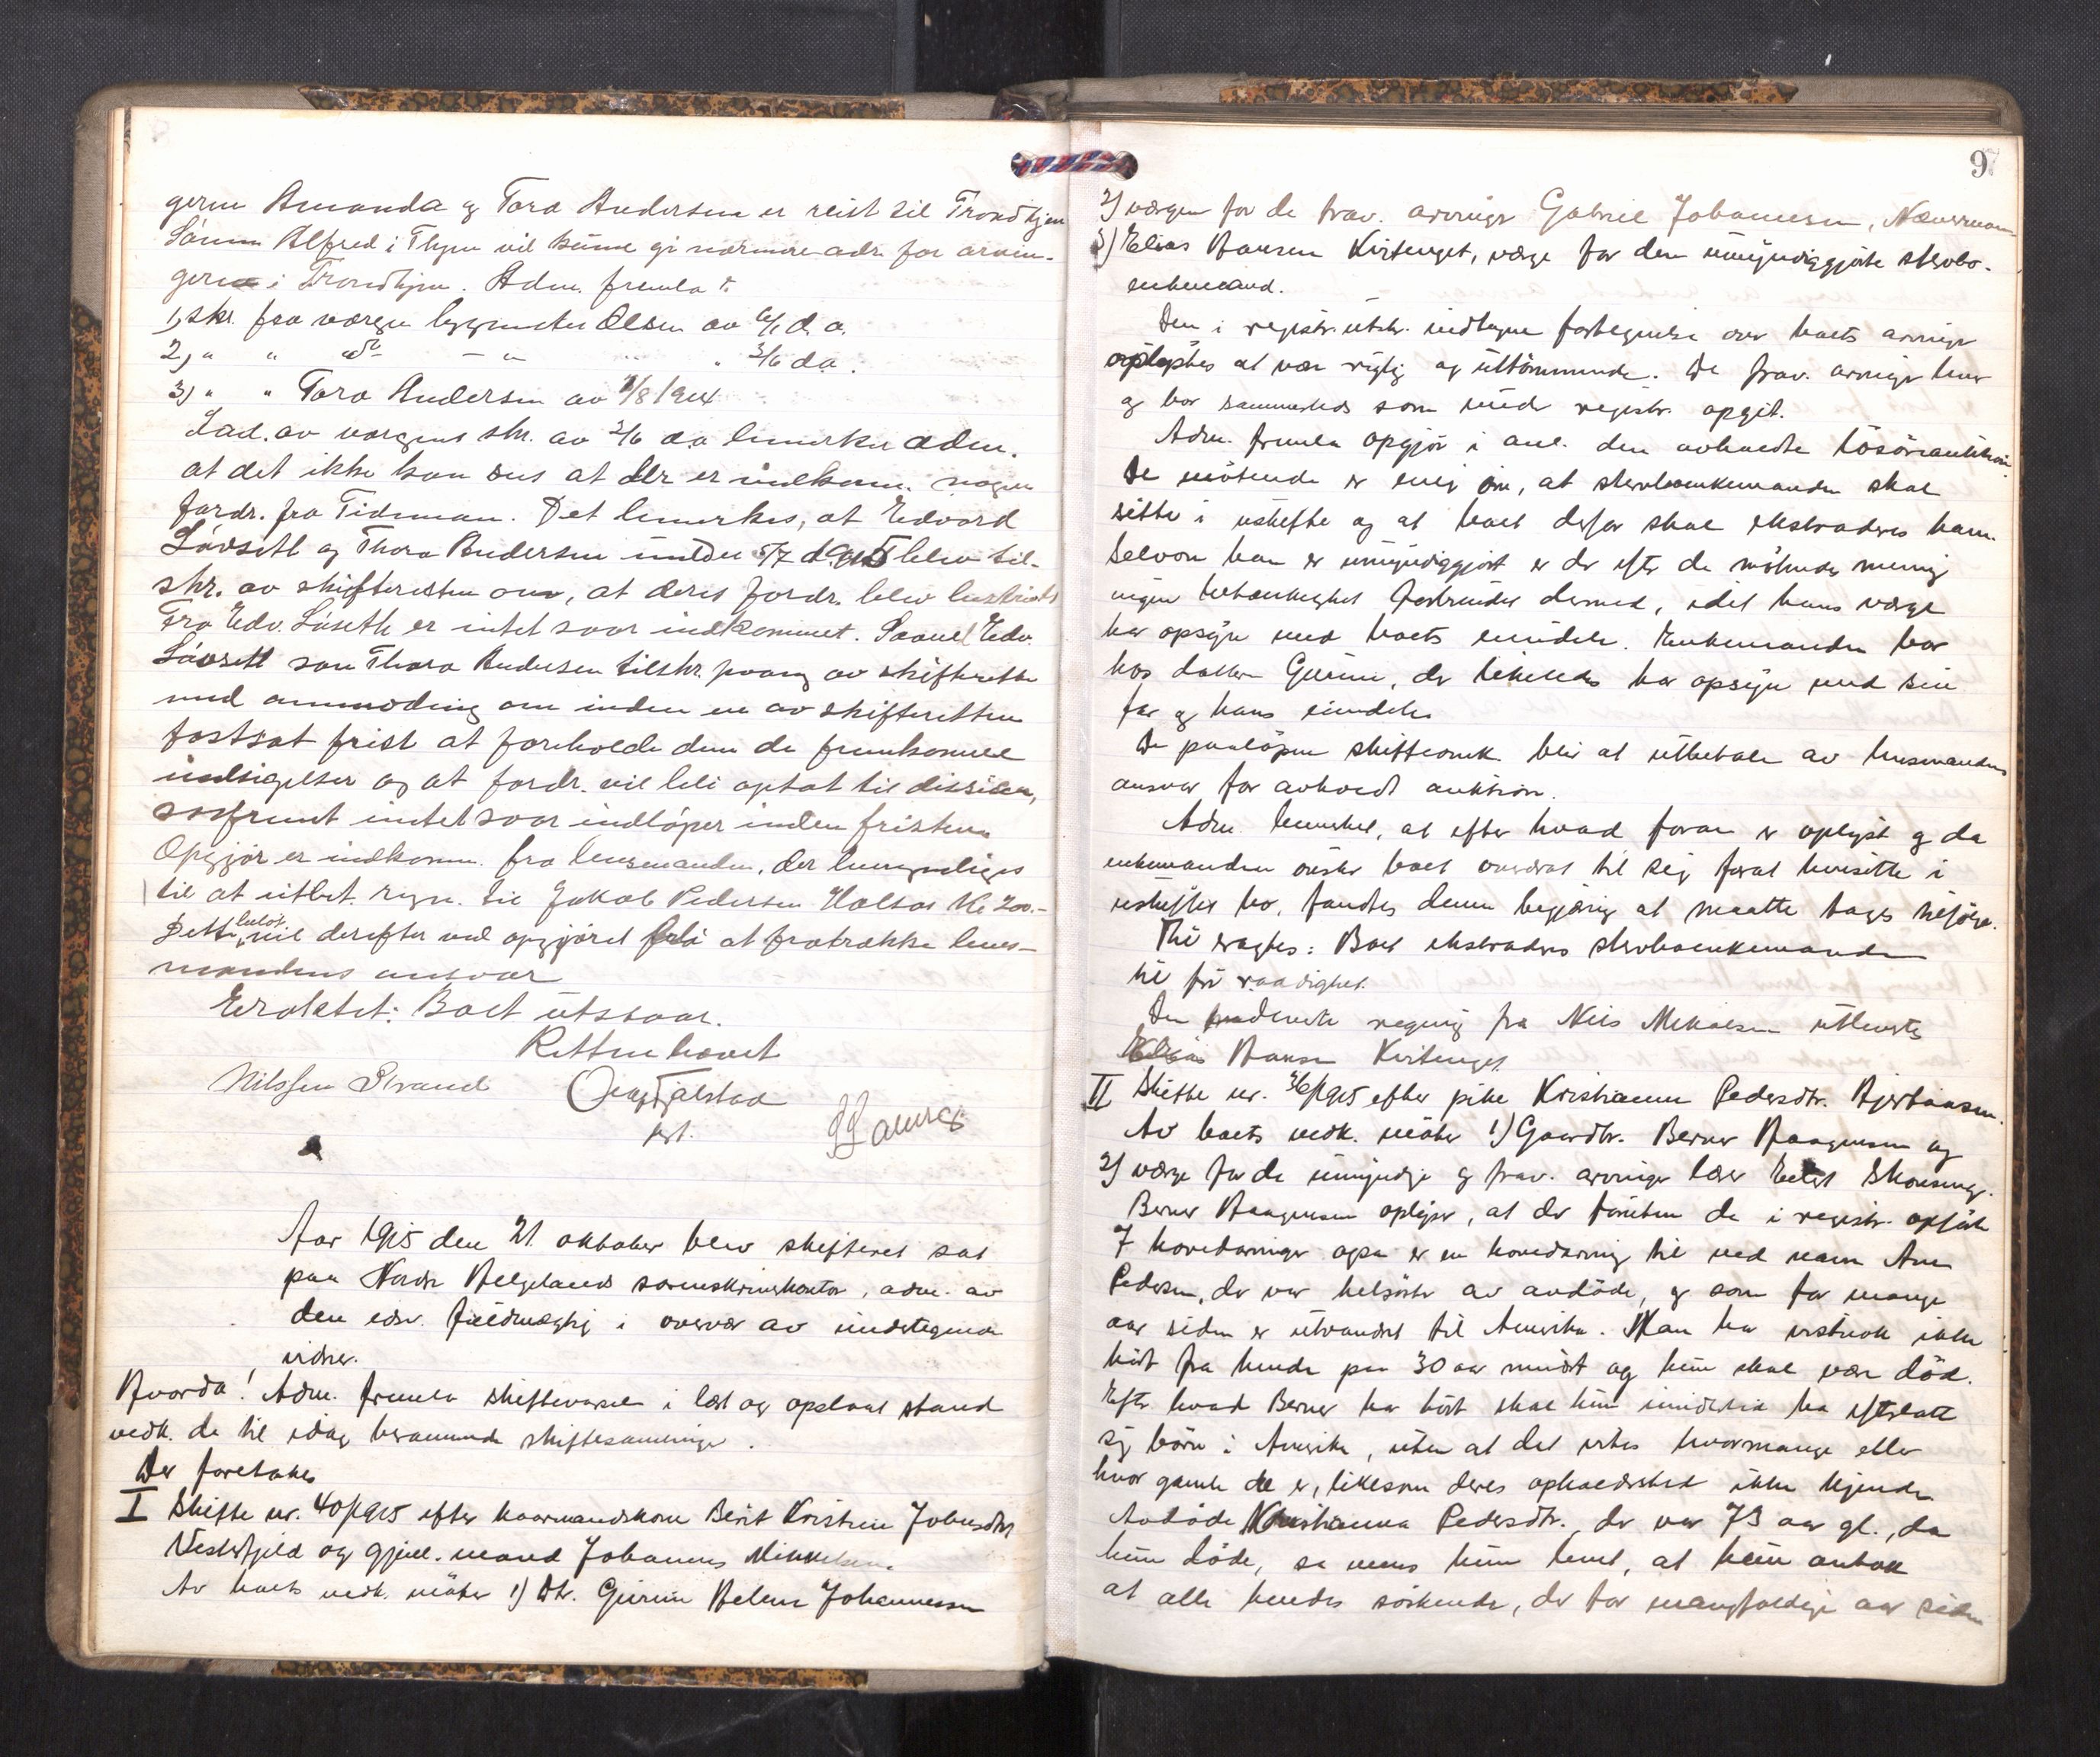 gerne Amanda og Tora Andersen er reist til Trondhjem
Sönnen Alfred i Thjem vil kunne gi nærmere adr. for arvin-
gerne i Trondhjem. Adm. fremla
1, skr. fra værgen byggmester Olsen av 6/1 d.a.
2, " " do - " - " 3/6 da.
3) " " Tora Andersen av 1/8 1914
I an. av værgens skr. av 3/6 da bemerker adm.
at det ikke kan sees at der er indkom. nogen
fordr. fra Tideman. Det bemerkes, at Edvard
Lövseth og Thora Andersen under 5/7 d.a. blev til-
skr. av skifteretten om, at deres fordr. blev bestridt
Fra Edv. Löseth er intet svar indkommet. Saavel Edv.
Lövsett som Thora Andersen tilskr. paany av skifteretten
med anmodning om inden en av skifteretten
fastsat frist at forholde dem de fremkomne
indsigelser og at fordr. vil bli optat til decision,
saafremt intet svar indlöper inden fristen
Opgjör er indkom. fra lensmanden, der bemyndiges
til at utbet. regn. til Jakob Pedersen Halsos Kr 200.-
Dette belöp vil derefter ved opgjöret bli at fratrække lens-
mandens ansvar
Eragtet: Boet utstaar.
Retten hævet
Nilssen Strand
fst.
Aar 1915 den 21. oktober blev skifteret sat
paa Nordre Helgelands sorenskriverkontor, adm. av
den edsv. fuldmægtig i overvær av undertegnede
vidner.
Hvorda! Adm. fremla skiftevarsel i læst og opslaat stand
vedk. de til idag berammede skiftesamlinger.
Der foretokes
I Skifte nr. 40/1915 efter kaarmandskone Berit Kristine Johnsdtr
Vesterfjeld og gjenl. mand Johannes Mikkelsen.
Av boets vedk. möter 1) Dtr. Gurine Helene Johannessen
97
2) værgen for de frav. arvinger Gabriel Johannesen,
3) Elias Hansen Kvitenget, værge for den umyndiggjorte stervbo-
enkemand.
Den i registr. utskr. indtagne fortegnelse over boets arvinger
oplystes at være rigtig og uttömmende. De frav. arvinger lever
og bor sammesteds som under registr. opgit.
Adm. fremla opgjör i anl. den avholdte lösöreauktion
De mötende er enig om, at stervboenkemanden skal
sitte i uskifte og at boet derfor skal ekstraderes ham.
Selvom han er umyndiggjort er der efter de mötendes mening
ingen betænkelighet forbundet dermed, idet hans værge
har opsyn med boets eiendele. Enkemanden bor
hos datter Gurine, der likeledes har opsyn med sin
far og hans eiendeler
De paalöpne skifteomk. blir at utbetale av lensmandens
ansvar for avholdt auktion.
Adm. bemerket, at efter hvad foran er oplyst og da
enkemanden önsker boet overdrat til sig forat hensitte i
uskiftet bo, fandtes denne begjæring at maatte tages tilfölge.
Thi eragtes: Boet ekstraderes stervboenkemanden
til fri raadighet.
Den regning fra Nils Mikalsen utlevertes
Elias Hansen Kvitenget
II Skifte nr. 36/1915 efter pike Kristianna Pedersdtr.
Av boets vedk. möter 1) Gaardbr. Berner Haagensen og
2) værge for de umyndige og frav. arvinger lærer
Berner Haagensen oplyser, at der foruten de i registr. opförte
7 hovedarvinger ogsaa er en hovedarving til ved navn Ane
Pedersen, der var helsöster av avdöde, og som for mange
aar siden er utvandret til Amerika. Man har vistnok ikke
hört fra hende paa 30 aar mindst og hun skal være död.
Efter hvad Berner har hört skal hun imidlertid ha efterlatt
sig barn i Amerika, uten at det vites hvormange eller
hvor gamle de er, likesom deres opholdssted ikke kjendes
Avdöde Kristianna Pedersdtr. der var 73 aar gl., da
hun döde, sa mens hun levet, at hun antok
at alle hendes söskende, der for mangfoldige aar siden